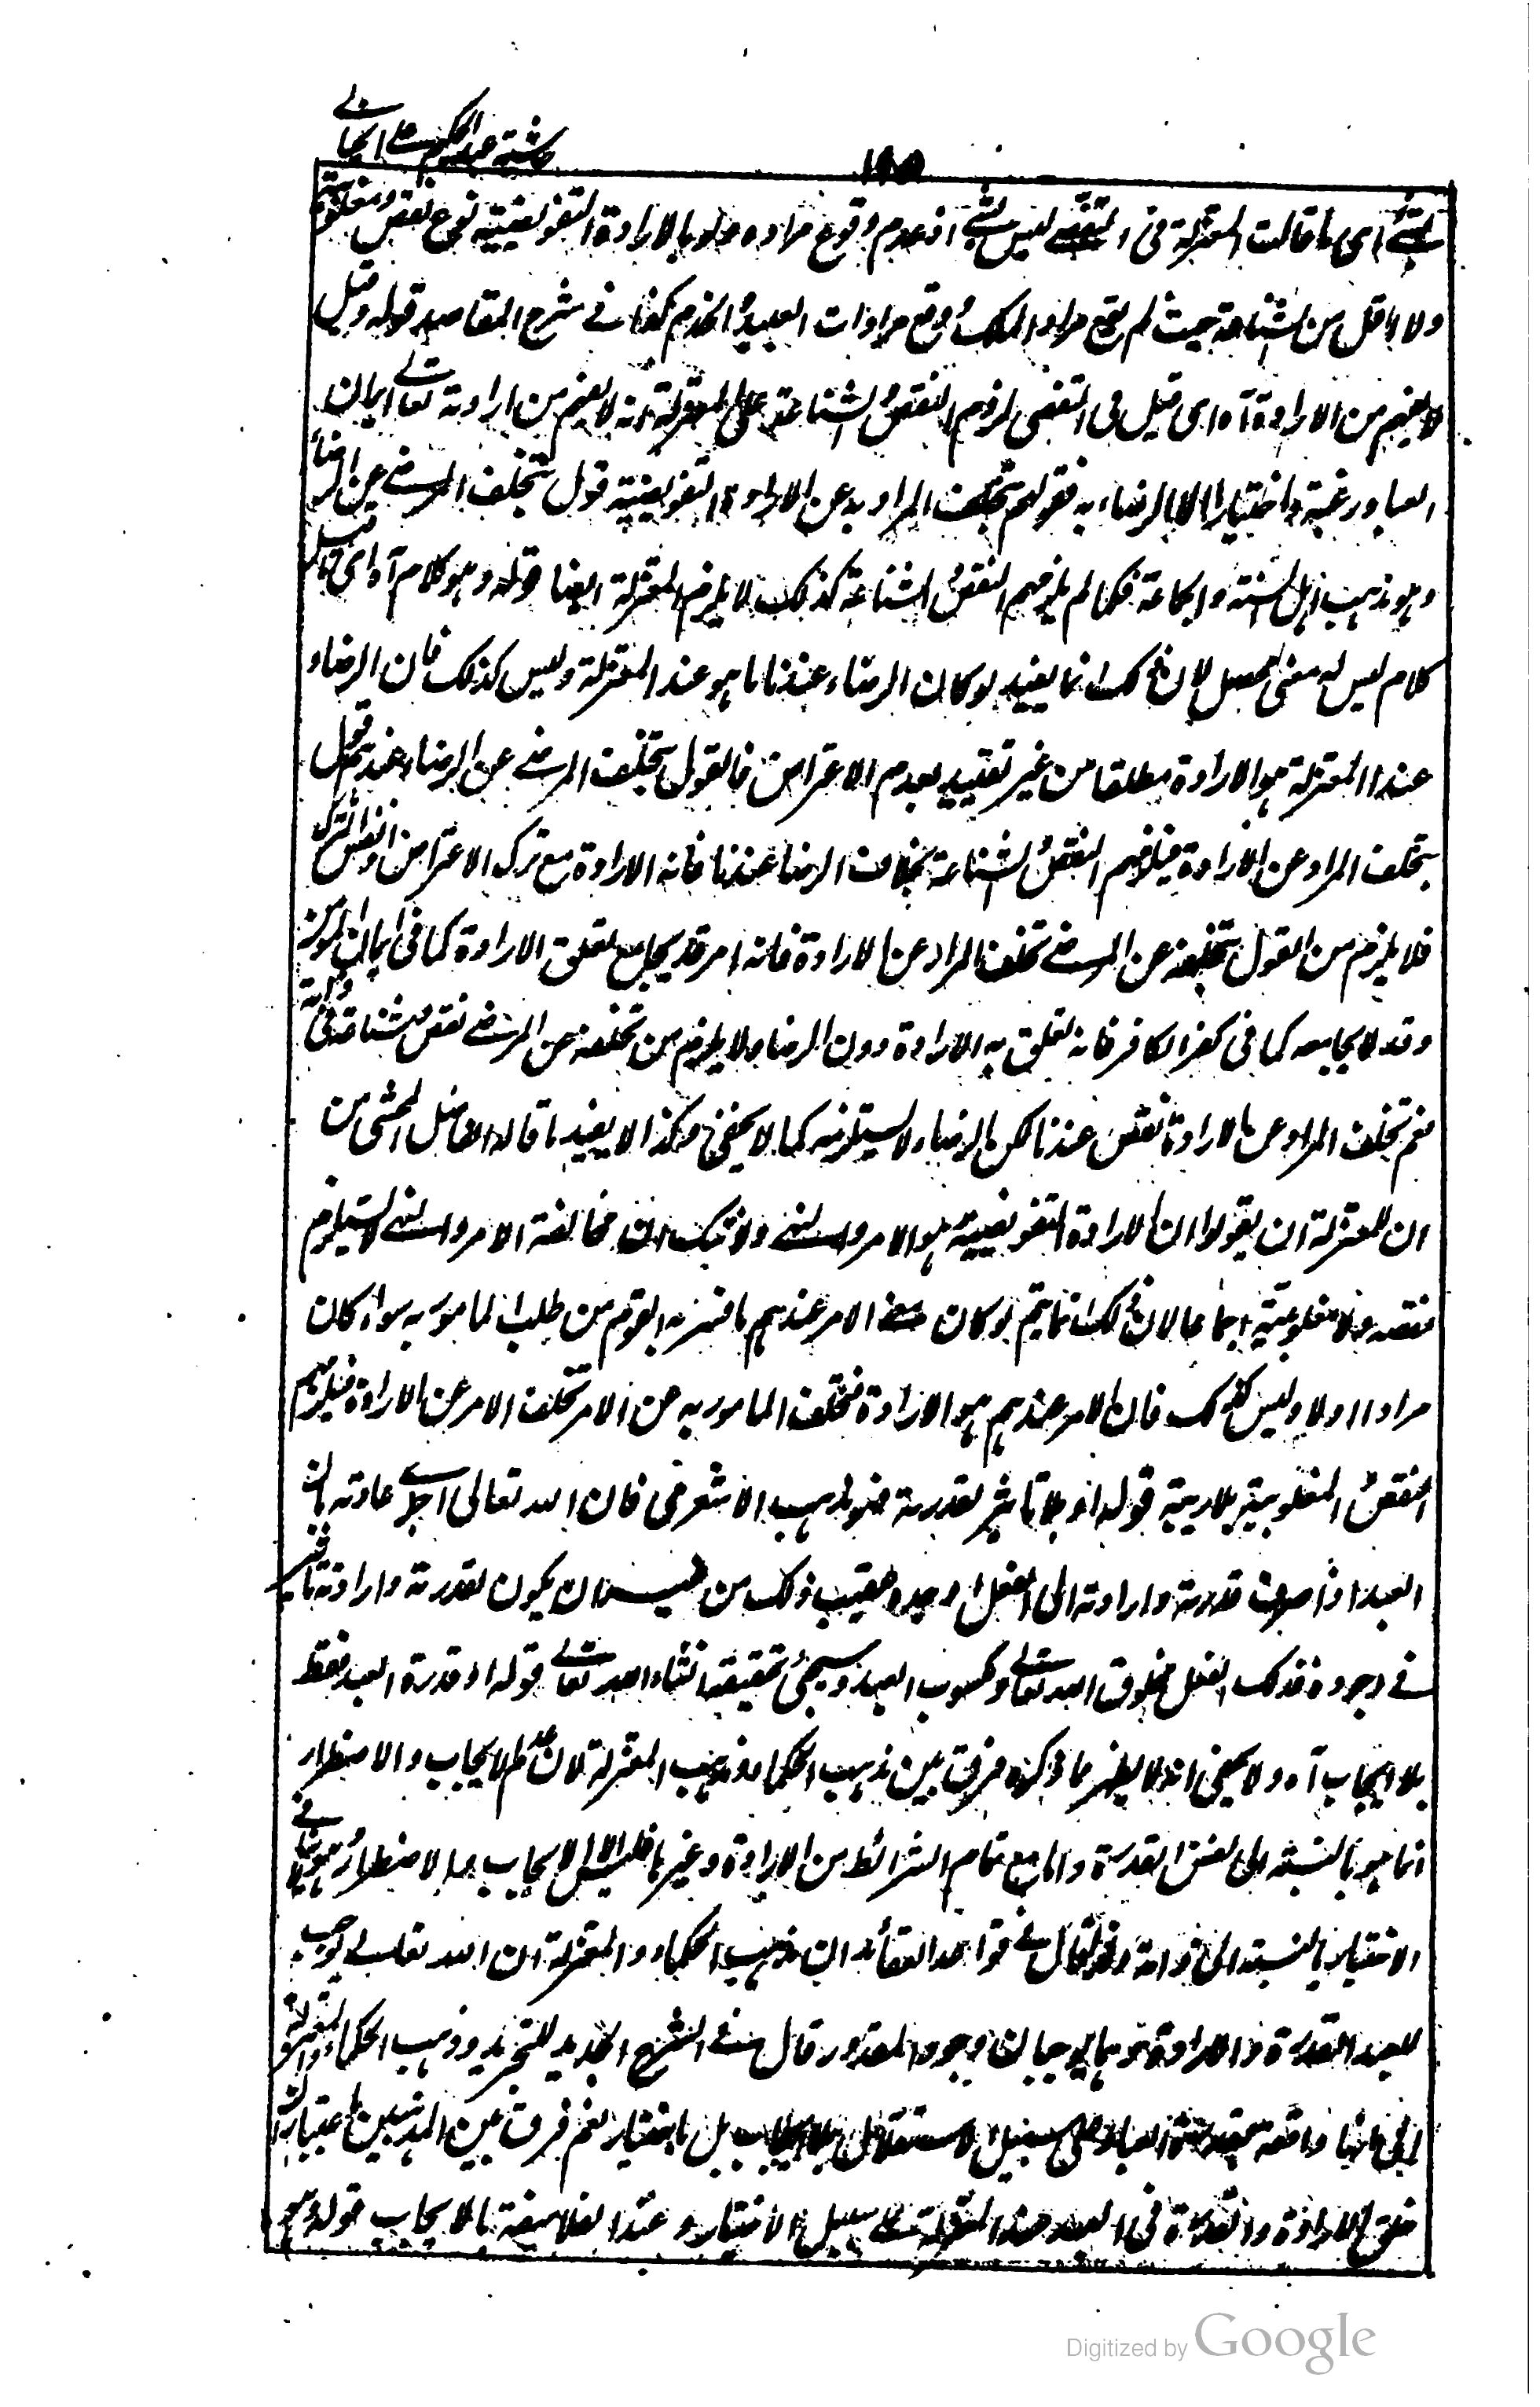 حاشیة عبد الحکیم علے الخیالے
١٩٥
بشئے ای ما قالت المعتزلة فی التفصے لیس بشئے اذ عدم وقوع مراده ولو بالارادة التفویضیة نوع نقص ومغلوبیة
ولا اقل من الشناعة حیث لم یقع مراد الملک ووقع مرادات العبید والخدم کذا فے شرح المقاصد قوله وقیل
لا یفهم من الارادة آه ای قیل فی التفصی لزوم النقص والشناعة علی المعتزلة انه لا یفهم من ارادته تعالے ایمان
العباد رغبة واختیارا الا الرضاء به فقولهم بتخلف المراد به عن الارادة التفویضیة قول بتخلف المرضے عن الرضاء
وهو مذهب اهل السنة والجماعة فکما لم یلزمهم النقص والشناعة کذلک لا یلزم المعتزلة ایضا قوله وهو کلام آه ای ما قیل
کلام لیس له معنی محصل لان ذلک انما یفید لو کان الرضاء عندنا ما هو عند المعتزلة ولیس کذلک فان الرضاء
عند المعتزلة هو الارادة مطلقا من غیر تقیید بعدم الاعتراض فالقول بتخلف المرضے عن الرضاء عندهم قول
بتخلف المراد عن الارادة فیلزمهم النقص والشناعة بخلاف الرضا عندنا فانه الارادة مع ترک الاعتراض او نفس الترک
فلا یلزم من القول بتخلفه عن المرضے تخلف المراد عن الارادة فانه امر قد یجامع تعلق الارادة کما فی ایمان المؤمن
وقد لا یجامعه کما فی کفر الکافر فانه تعلق به الارادة دون الرضا ولا یلزم من تخلفه عن المرضے نقص وشناعة فی
نعم تخلف المراد عن الارادة نقص عندنا لکن الرضاء لا یستلزمه کما لا یخفی وکذا لا یفید ما قاله الفاضل المحشی من
ان للمعتزلة ان یقولوا ان الارادة التفویضیة هو الامر والنهے ولا شک ان مخالفة الامر والنهے لا یستلزم
نقصه ولا مغلوبیة اجماعا لان ذلک انما یتم لو کان معنے الامر عندهم ما فسر به القوم من طلب المامور به سواء کان
مرادا او لا ولیس کذلک فان الامر عندهم هو الارادة فتخلف المامور به عن الامر تخلف الامر عن الارادة فیلزمهم
النقص والمغلوبیة بلا ریبة قوله او بلا تاثیر لقدرته هو مذهب الاشعری فان الله تعالی اجرے عادته بان
العبد اذا صرف قدرته وارادته الی الفعل اوجده عقیب ذلک من غیر ان یکون لقدرته وارادته تاثیر
فے وجوده فذلک الفعل مخلوق الله تعالے ومکسوب العبد وسیجئ تحقیقه انشاء الله تعالے قوله او قدرة العبد فقط
بلا ایجاب آه ولا یخفی انه لا یظهر مما ذکره فرق بین مذهب الحکماء ومذهب المعتزلة لان عدم الایجاب والاضطرار
انما هو بالنسبة الی نفس القدرة واما مع تمام الشرائط من الارادة وغیرها فلیس الا الایجاب والاضطرار وهو لا ینافے
الاختیار بالنسبة الی ذاته وقد قال فے قواعد العقائد ان مذهب الحکماء والمعتزلة ان الله تعالے یوجب
للعبد القدرة والارادة ثم هما یوجبان وجود المقدور قال فے الشرح الجدید للتجرید وذهب الحکماء والمعتزلة
الی انها واقعة بقدرة العباد علی سبیل الاستقلال بلا ایجاب بل باختیار نعم فرق بین المذهبین باعتبار ان
خلق الارادة والقدرة فی العبد عند المعتزلة علے سبیل الاختیار وعند الفلاسفة بالایجاب قوله وهو
Digitized by Google